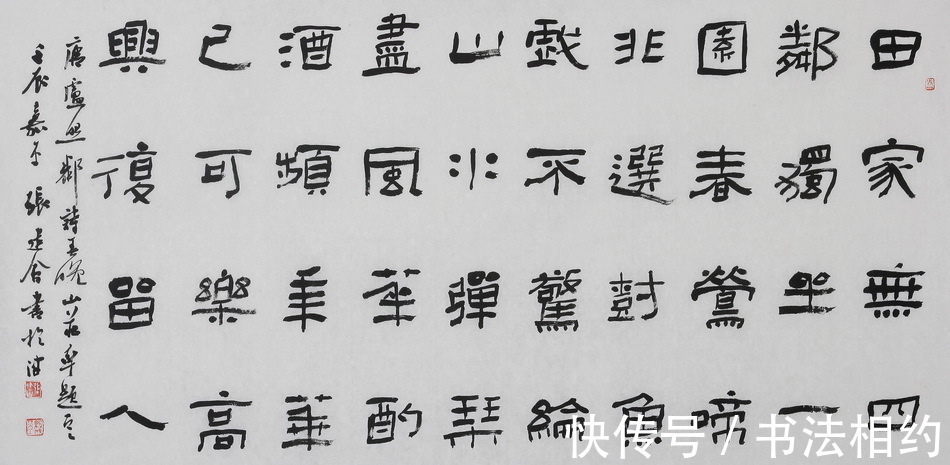 田家無四
鄰獨坐一
園春鶯啼
非選樹魚
戲不驚綸
山水彈琴
盡風花酌
酒頻年華
已可樂高
興復留人
唐盧照鄰詩春晚山莊率題之二
壬辰嘉平張建會書於津
快传号 / 书法相约